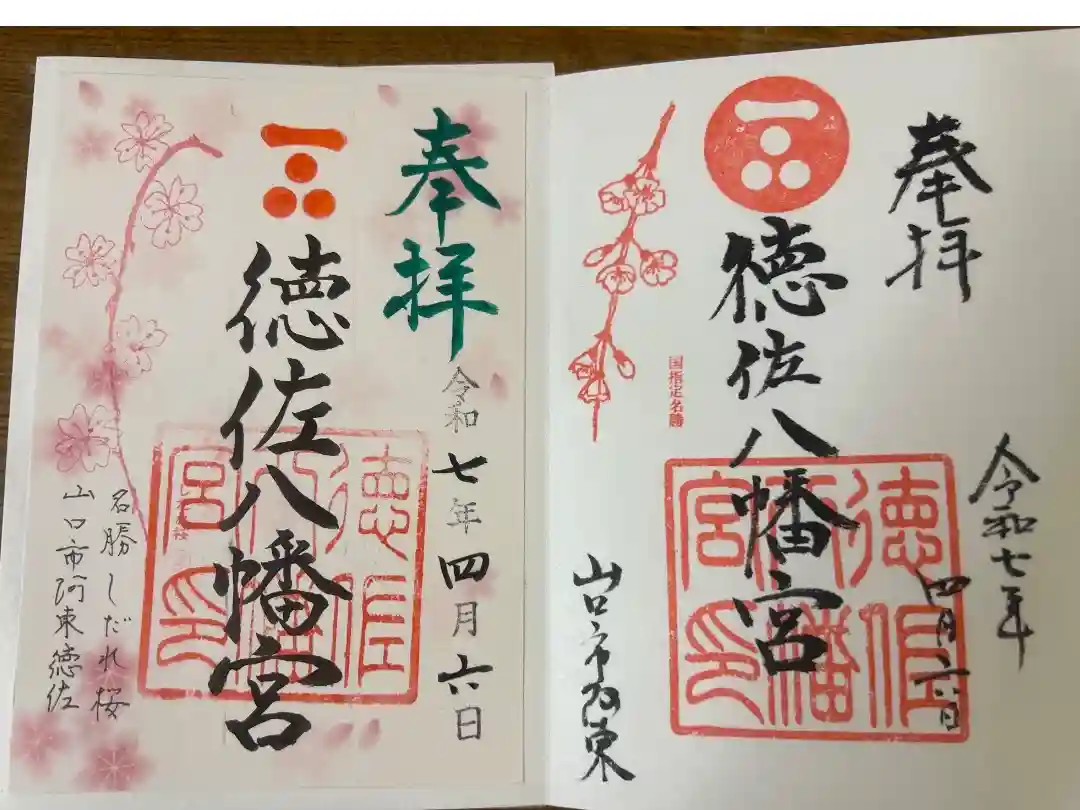 奉拝
徳佐八幡宮
令和七年
四月六日
国指定名勝
山口市阿東
徳佐八幡宮印
奉拝
令和七年四月六日
徳佐八幡宮
徳佐八幡宮印
名勝しだれ桜
山口市阿東徳佐